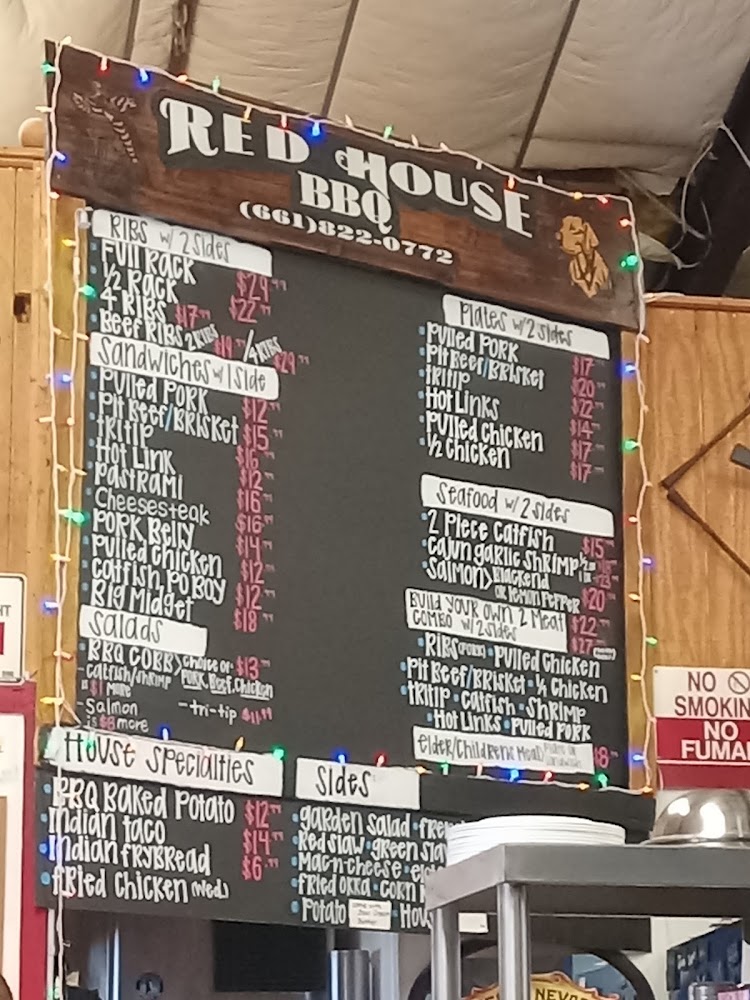 RED HOUSE
BBQ
(661)822-0772
RIBS w/ 2 sides
Full Rack $29.99
1/2 Rack $22.99
4 RIBS $17.99
Beef Ribs 2 RIBS $19.99 / 4 RIBS $29.99
Sandwiches w/ 1 side
Pulled Pork $12.99
Pit Beef/Brisket $15.99
tritip $16.99
Hot Link $12.99
Pastrami $16.99
Cheesesteak $16.99
Pork Belly $14.99
Pulled Chicken $12.99
Catfish Po Boy $12.99
Big Midget $18.99
Salads
BBQ COBB > choice of $13.99
Pork, Beef, Chicken
- catfish/shrimp
is $1 more
- Salmon
is $8 more
- tri-tip
House Specialties
BBQ Baked Potato $12.99
Indian taco $14.99
Indian Frybread $6.99
Fried Chicken (Wed.)
Plates w/ 2 sides
Pulled Pork $17
Pit Beef/Brisket $20
tritip $22
Hot Links $14
Pulled Chicken $17
1/2 Chicken $17
Seafood w/ 2 sides
2 Piece Catfish $15
Cajun garlic shrimp
Salmon > Blackend
or lemon Pepper $20
Build your own 2 Meat
Combo w/ 2 sides $22
$27
Ribs (Pork) • Pulled Chicken
Pit Beef/Brisket • 1/4 Chicken
tritip • Catfish • Shrimp
Hot Links • Pulled Pork
Elder/Childrens Meals $8
Sides
garden salad •
Red slaw • green slaw
Mac-n-cheese •
Fried okra • corn
Potato
NO
SMOKIN
NO
FUMA
NEV